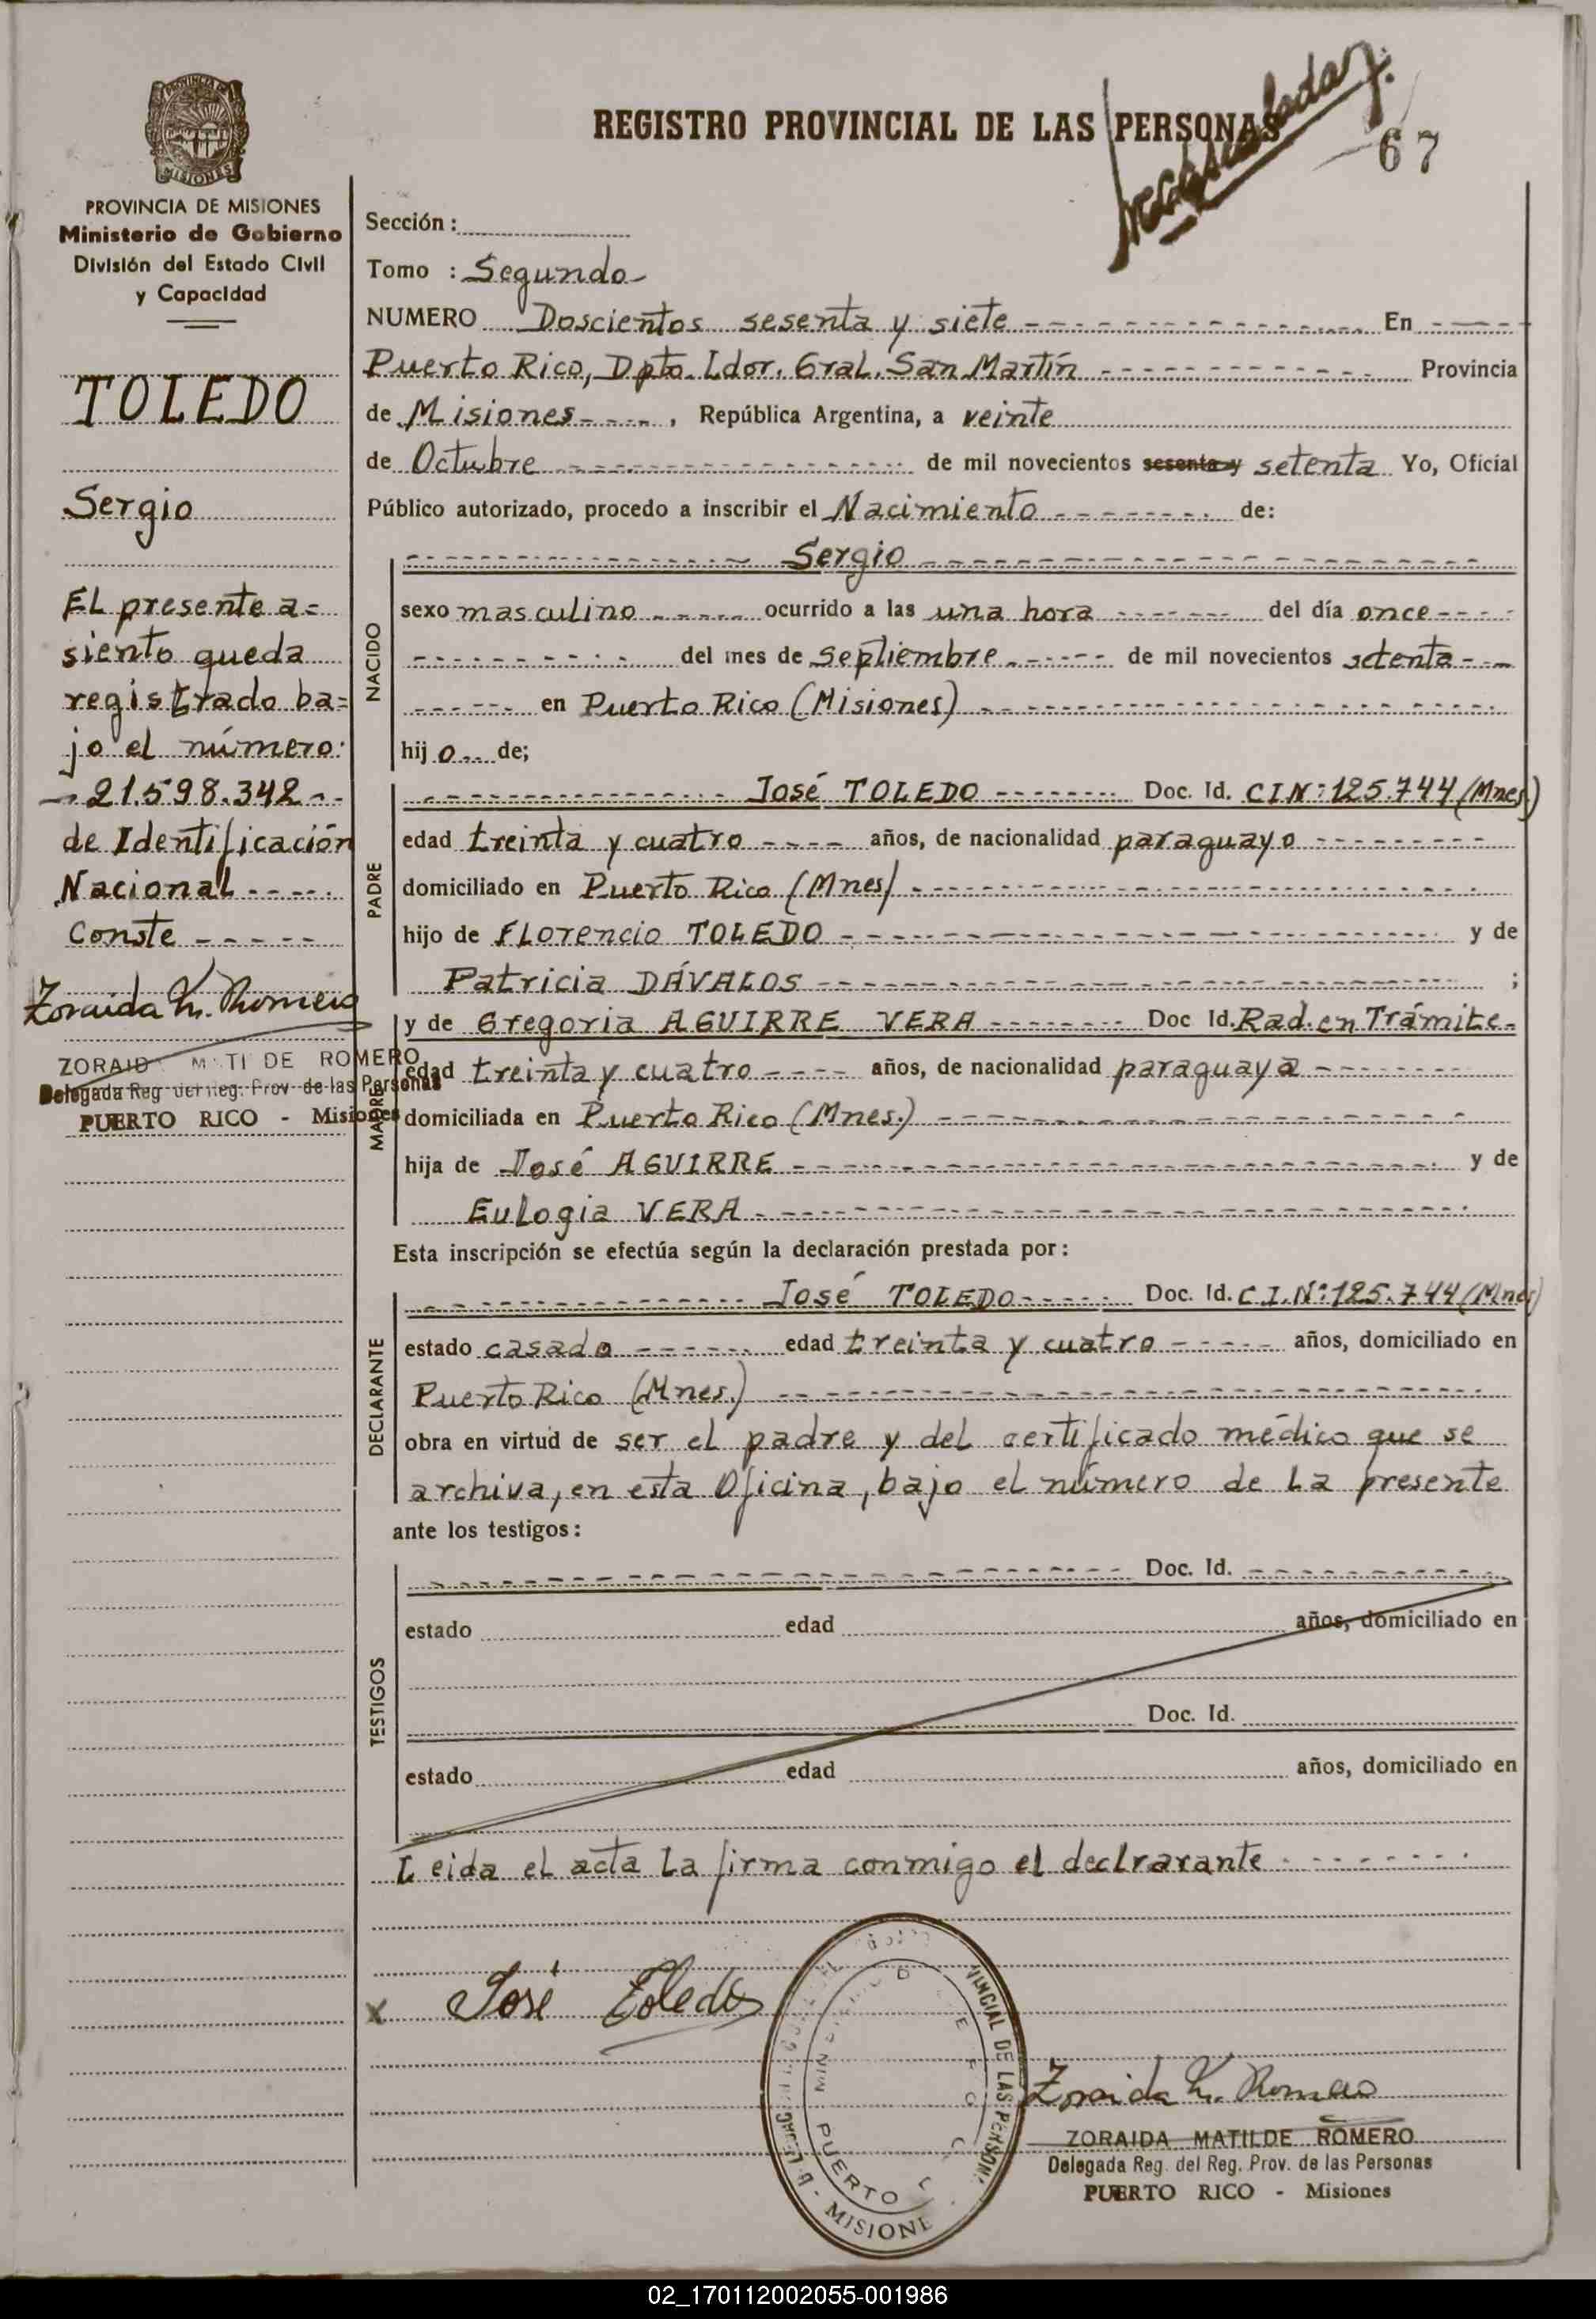 REGISTRO PROVINCIAL DE LAS PERSONAS
67
PROVINCIA DE MISIONES
MISIONES
PROVINCIA DE MISIONES
Ministerio de Gobierno
División del Estado Civil
y Capacidad
TOLEDO
Sergio
El presente a=
siento queda
registrado ba=
jo el número:
- 21.598.342 - -
de Identificación
Nacional - - - - -
Conste - - - - -
Zoraida M. Romero
ZORAID M TI DE ROMERO
Delegada Reg del Reg. Prov de las Personas
PUERTO RICO - Misiones
Sección :
Tomo : Segundo
NUMERO Doscientos sesenta y siete - - - En - - -
Puerto Rico, Dpto. Ldor. Gral. San Martín - - - Provincia
de Misiones - - - , República Argentina, a veinte
de Octubre - - - de mil novecientos sesenta y setenta Yo, Oficial
Público autorizado, procedo a inscribir el Nacimiento - - - de:
NACIDO
- - - Sergio - - -
sexo masculino - - - ocurrido a las una hora - - - del día once - - -
- - - del mes de Septiembre - - - de mil novecientos setenta - - -
- - - en Puerto Rico (Misiones) - - -
hij o - - de;
PADRE
- - - José TOLEDO - - - Doc. Id. CIN°:125.744 (Mnes.)
edad treinta y cuatro - - - años, de nacionalidad paraguayo - - -
domiciliado en Puerto Rico (Mnes) - - -
hijo de Florencio TOLEDO - - - y de
Patricia DÁVALOS - - - ;
MADRE
y de Gregoria AGUIRRE VERA - - - Doc Id. Rad. en Trámite -
edad treinta y cuatro - - - años, de nacionalidad paraguaya - - -
domiciliada en Puerto Rico (Mnes.) - - -
hija de José AGUIRRE - - - y de
Eulogia VERA - - -
Esta inscripción se efectúa según la declaración prestada por :
DECLARANTE
- - - José TOLEDO - - - Doc. Id. C.I.N°:125.744 (Mnes)
estado casado - - - edad treinta y cuatro - - - años, domiciliado en
Puerto Rico (Mnes.) - - -
obra en virtud de ser el padre y del certificado médico que se
archiva, en esta Oficina, bajo el número de la presente
ante los testigos :
TESTIGOS
- - - Doc. Id. - - -
estado edad años, domiciliado en
Doc. Id.
estado edad años, domiciliado en
Leida el acta la firma conmigo el declrarante - - -
x José Toledo
VINCIAL DE LAS PERSON
PUERTO
MISIONE
Zoraida M. Romero
ZORAIDA MATILDE ROMERO
Delegada Reg. del Reg. Prov. de las Personas
PUERTO RICO - Misiones
02_170112002055-001986